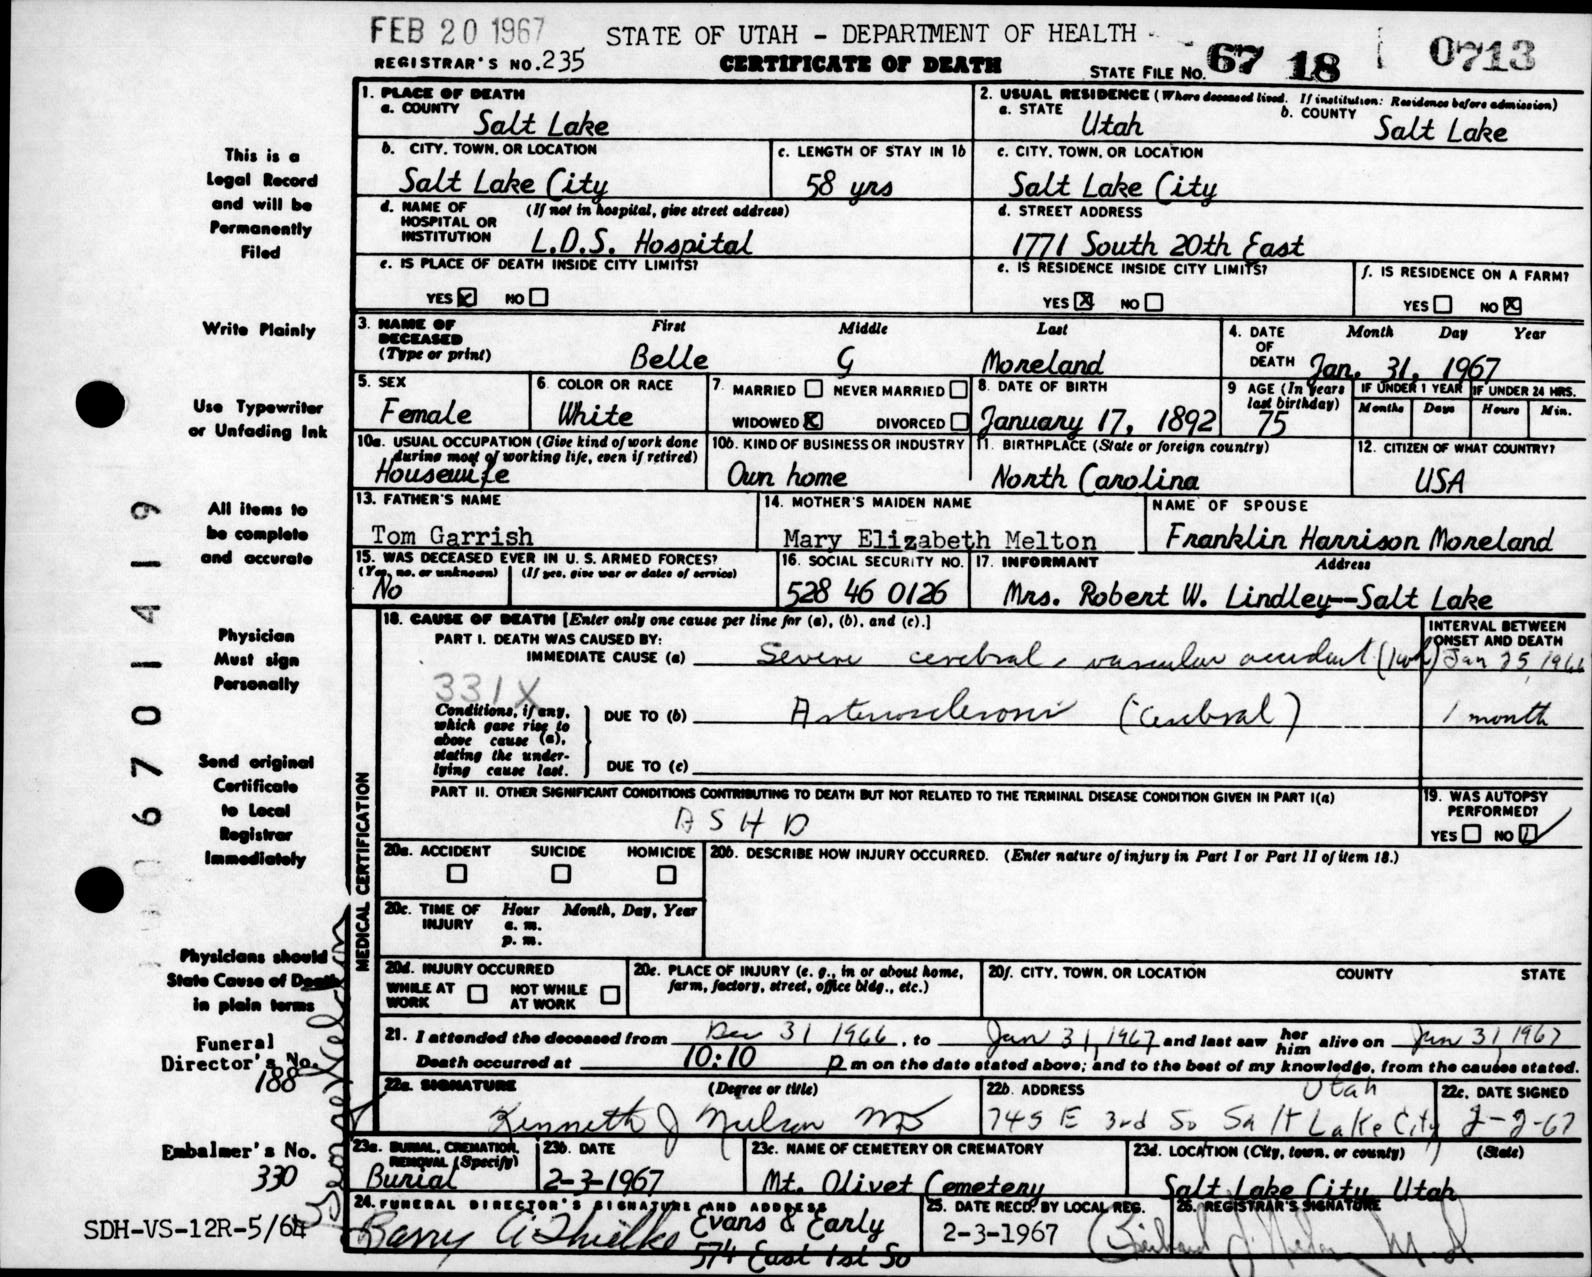 FEB 20 1967
STATE OF UTAH - DEPARTMENT OF HEALTH
REGISTRAR'S NO. 235
CERTIFICATE OF DEATH
STATE FILE NO. 67 18 0713
This is a
Legal Record
and will be
Permanently
Filed
Write Plainly
Use Typewriter
or Unfading Ink
All items to
be complete
and accurate
Physician
Must sign
Personally
Send original
Certificate
to Local
Registrar
Immediately
Physicians should
State Cause of Death
in plain terms
Funeral
Director's No.
188
Embalmer's No.
330
SDH-VS-12R-5/64
6701419
1. PLACE OF DEATH
a. COUNTY
Salt Lake
2. USUAL RESIDENCE (Where deceased lived. If institution: Residence before admission)
a. STATE
Utah
b. COUNTY
Salt Lake
b. CITY, TOWN, OR LOCATION
Salt Lake City
c. LENGTH OF STAY IN 1b
58 yrs
c. CITY, TOWN, OR LOCATION
Salt Lake City
d. NAME OF HOSPITAL OR INSTITUTION
(If not in hospital, give street address)
L.D.S. Hospital
d. STREET ADDRESS
1771 South 20th East
e. IS PLACE OF DEATH INSIDE CITY LIMITS?
YES ☒ NO ☐
e. IS RESIDENCE INSIDE CITY LIMITS?
YES ☒ NO ☐
f. IS RESIDENCE ON A FARM?
YES ☐ NO ☒
3. NAME OF DECEASED
(Type or print)
First Middle Last
Belle G Moreland
4. DATE OF DEATH
Month Day Year
Jan. 31, 1967
5. SEX
Female
6. COLOR OR RACE
White
7. MARRIED ☐ NEVER MARRIED ☐
WIDOWED ☒ DIVORCED ☐
8. DATE OF BIRTH
January 17, 1892
9 AGE (In years last birthday)
75
IF UNDER 1 YEAR
Months Days
IF UNDER 24 HRS.
Hours Min.
10a. USUAL OCCUPATION (Give kind of work done during most of working life, even if retired)
Housewife
10b. KIND OF BUSINESS OR INDUSTRY
Own home
11. BIRTHPLACE (State or foreign country)
North Carolina
12. CITIZEN OF WHAT COUNTRY?
USA
13. FATHER'S NAME
Tom Garrish
14. MOTHER'S MAIDEN NAME
Mary Elizabeth Melton
NAME OF SPOUSE
Franklin Harrison Moreland
15. WAS DECEASED EVER IN U. S. ARMED FORCES?
(Yes, no, or unknown) (If yes, give war or dates of service)
No
16. SOCIAL SECURITY NO.
528 46 0126
17. INFORMANT Address
Mrs. Robert W. Lindley--Salt Lake
MEDICAL CERTIFICATION
18. CAUSE OF DEATH [Enter only one cause per line for (a), (b), and (c).]
PART I. DEATH WAS CAUSED BY:
IMMEDIATE CAUSE (a) Severe cerebral vascular accident (1wk)
INTERVAL BETWEEN ONSET AND DEATH
Jan 25, 1966
331X
Conditions, if any, which gave rise to above cause (a), stating the underlying cause last.
DUE TO (b) Arteriosclerosis (Cerebral)
1 month
DUE TO (c)
PART II. OTHER SIGNIFICANT CONDITIONS CONTRIBUTING TO DEATH BUT NOT RELATED TO THE TERMINAL DISEASE CONDITION GIVEN IN PART I(a)
A S H D
19. WAS AUTOPSY PERFORMED?
YES ☐ NO ☑
20a. ACCIDENT SUICIDE HOMICIDE
☐ ☐ ☐
20b. DESCRIBE HOW INJURY OCCURRED. (Enter nature of injury in Part I or Part II of item 18.)
20c. TIME OF INJURY
Hour Month, Day, Year
a. m.
p. m.
20d. INJURY OCCURRED
WHILE AT WORK ☐ NOT WHILE AT WORK ☐
20e. PLACE OF INJURY (e. g., in or about home, farm, factory, street, office bldg., etc.)
20f. CITY, TOWN, OR LOCATION COUNTY STATE
21. I attended the deceased from Dec 31 1966, to Jan 31, 1967 and last saw her him alive on Jan 31 1967
Death occurred at 10:10 p m on the date stated above; and to the best of my knowledge, from the causes stated.
22a. SIGNATURE (Degree or title)
Kenneth J Nielsen MD
22b. ADDRESS
Utah
745 E 3rd So Salt Lake City
22c. DATE SIGNED
2-2-67
23a. BURIAL, CREMATION, REMOVAL (Specify)
Burial
23b. DATE
2-3-1967
23c. NAME OF CEMETERY OR CREMATORY
Mt. Olivet Cemetery
23d. LOCATION (City, town, or county) (State)
Salt Lake City, Utah
24. FUNERAL DIRECTOR'S SIGNATURE AND ADDRESS
Evans & Early
574 East 1st So
25. DATE REC'D. BY LOCAL REG.
2-3-1967
26. REGISTRAR'S SIGNATURE